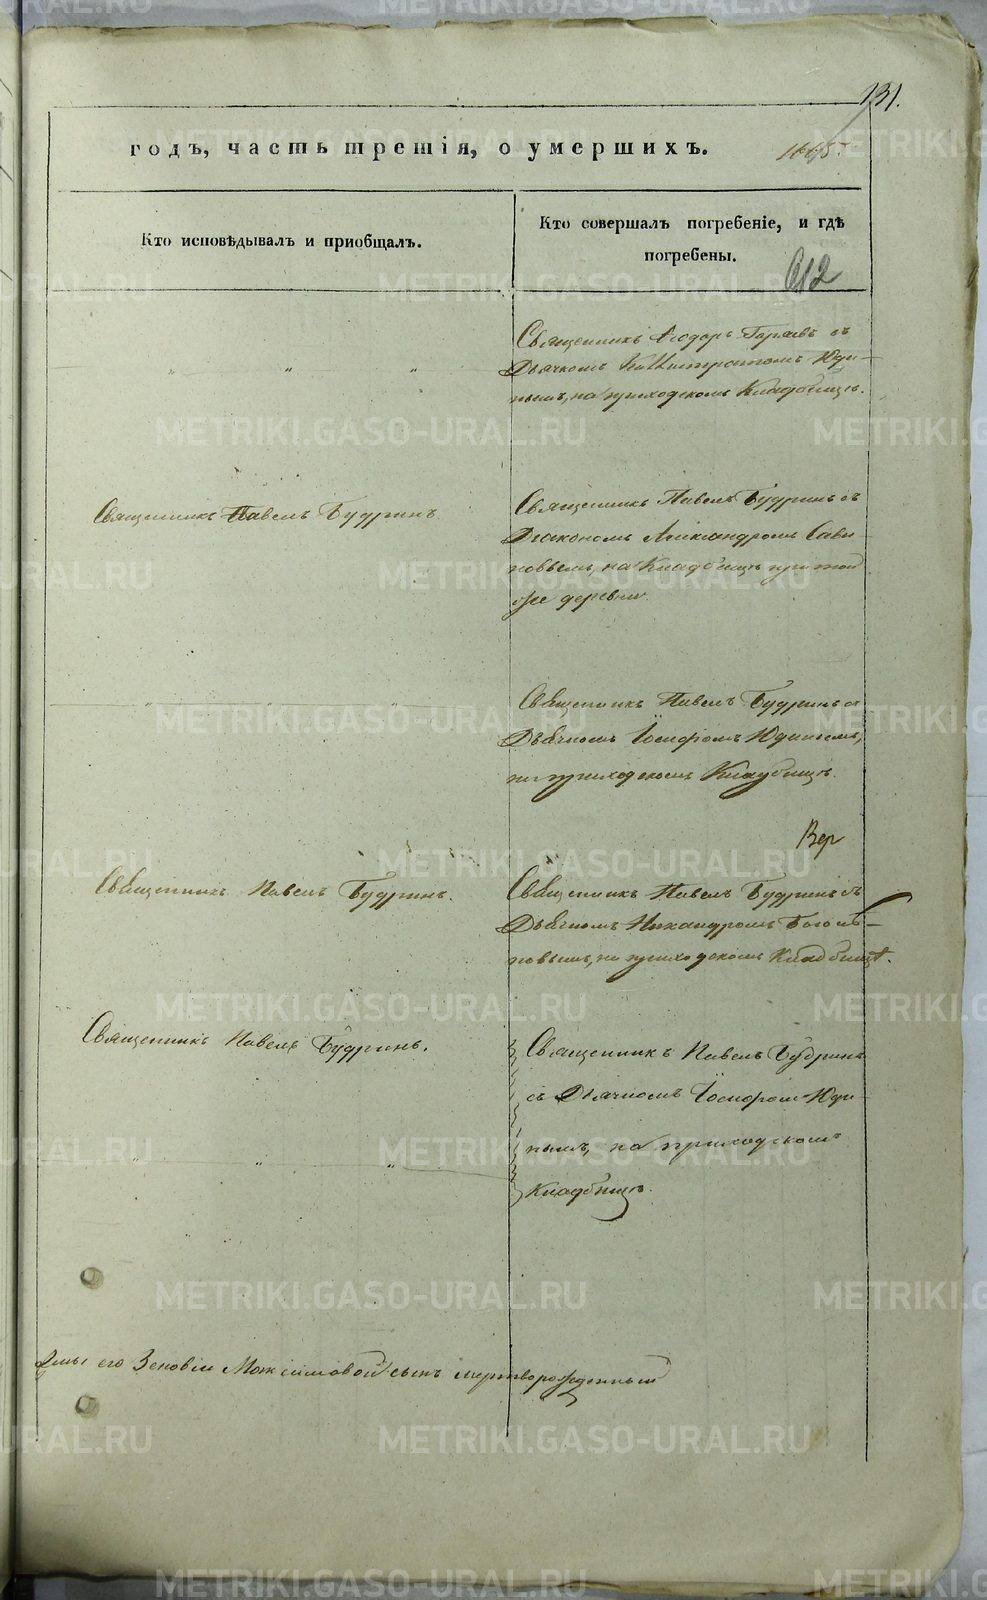 131.
годъ, часть третія, о умершихъ.
Кто исповѣдывалъ и приобщалъ.
Кто совершалъ погребеніе, и гдѣ
погребены.
612
Священникъ Ѳеодоръ съ
Дьячкомъ Юди-
нымъ, на приходскомъ Кладбищѣ.
Священникъ Павелъ Будринъ
Священникъ Павелъ Будринъ съ
Діакономъ Александромъ Сави
новымъ, на Кладбищѣ при той
же деревни.
Священникъ Павелъ Будринъ съ
Дьячкомъ Іосифомъ Юдинымъ,
на приходскомъ Кладбищѣ.
Вер
Священникъ Павелъ Будринъ.
Священникъ Павелъ Будринъ съ
Дьячкомъ Никандромъ
новымъ, на приходскомъ Кладбищѣ.
Священникъ Павелъ Будринъ.
Священникъ Павелъ Будринъ
съ Дьячкомъ Іосифомъ Юди-
нымъ, на приходскомъ
Кладбищѣ.
его Зеновіи Максимовой сынъ мертворожденный
METRIKI.GASO-URAL.RU